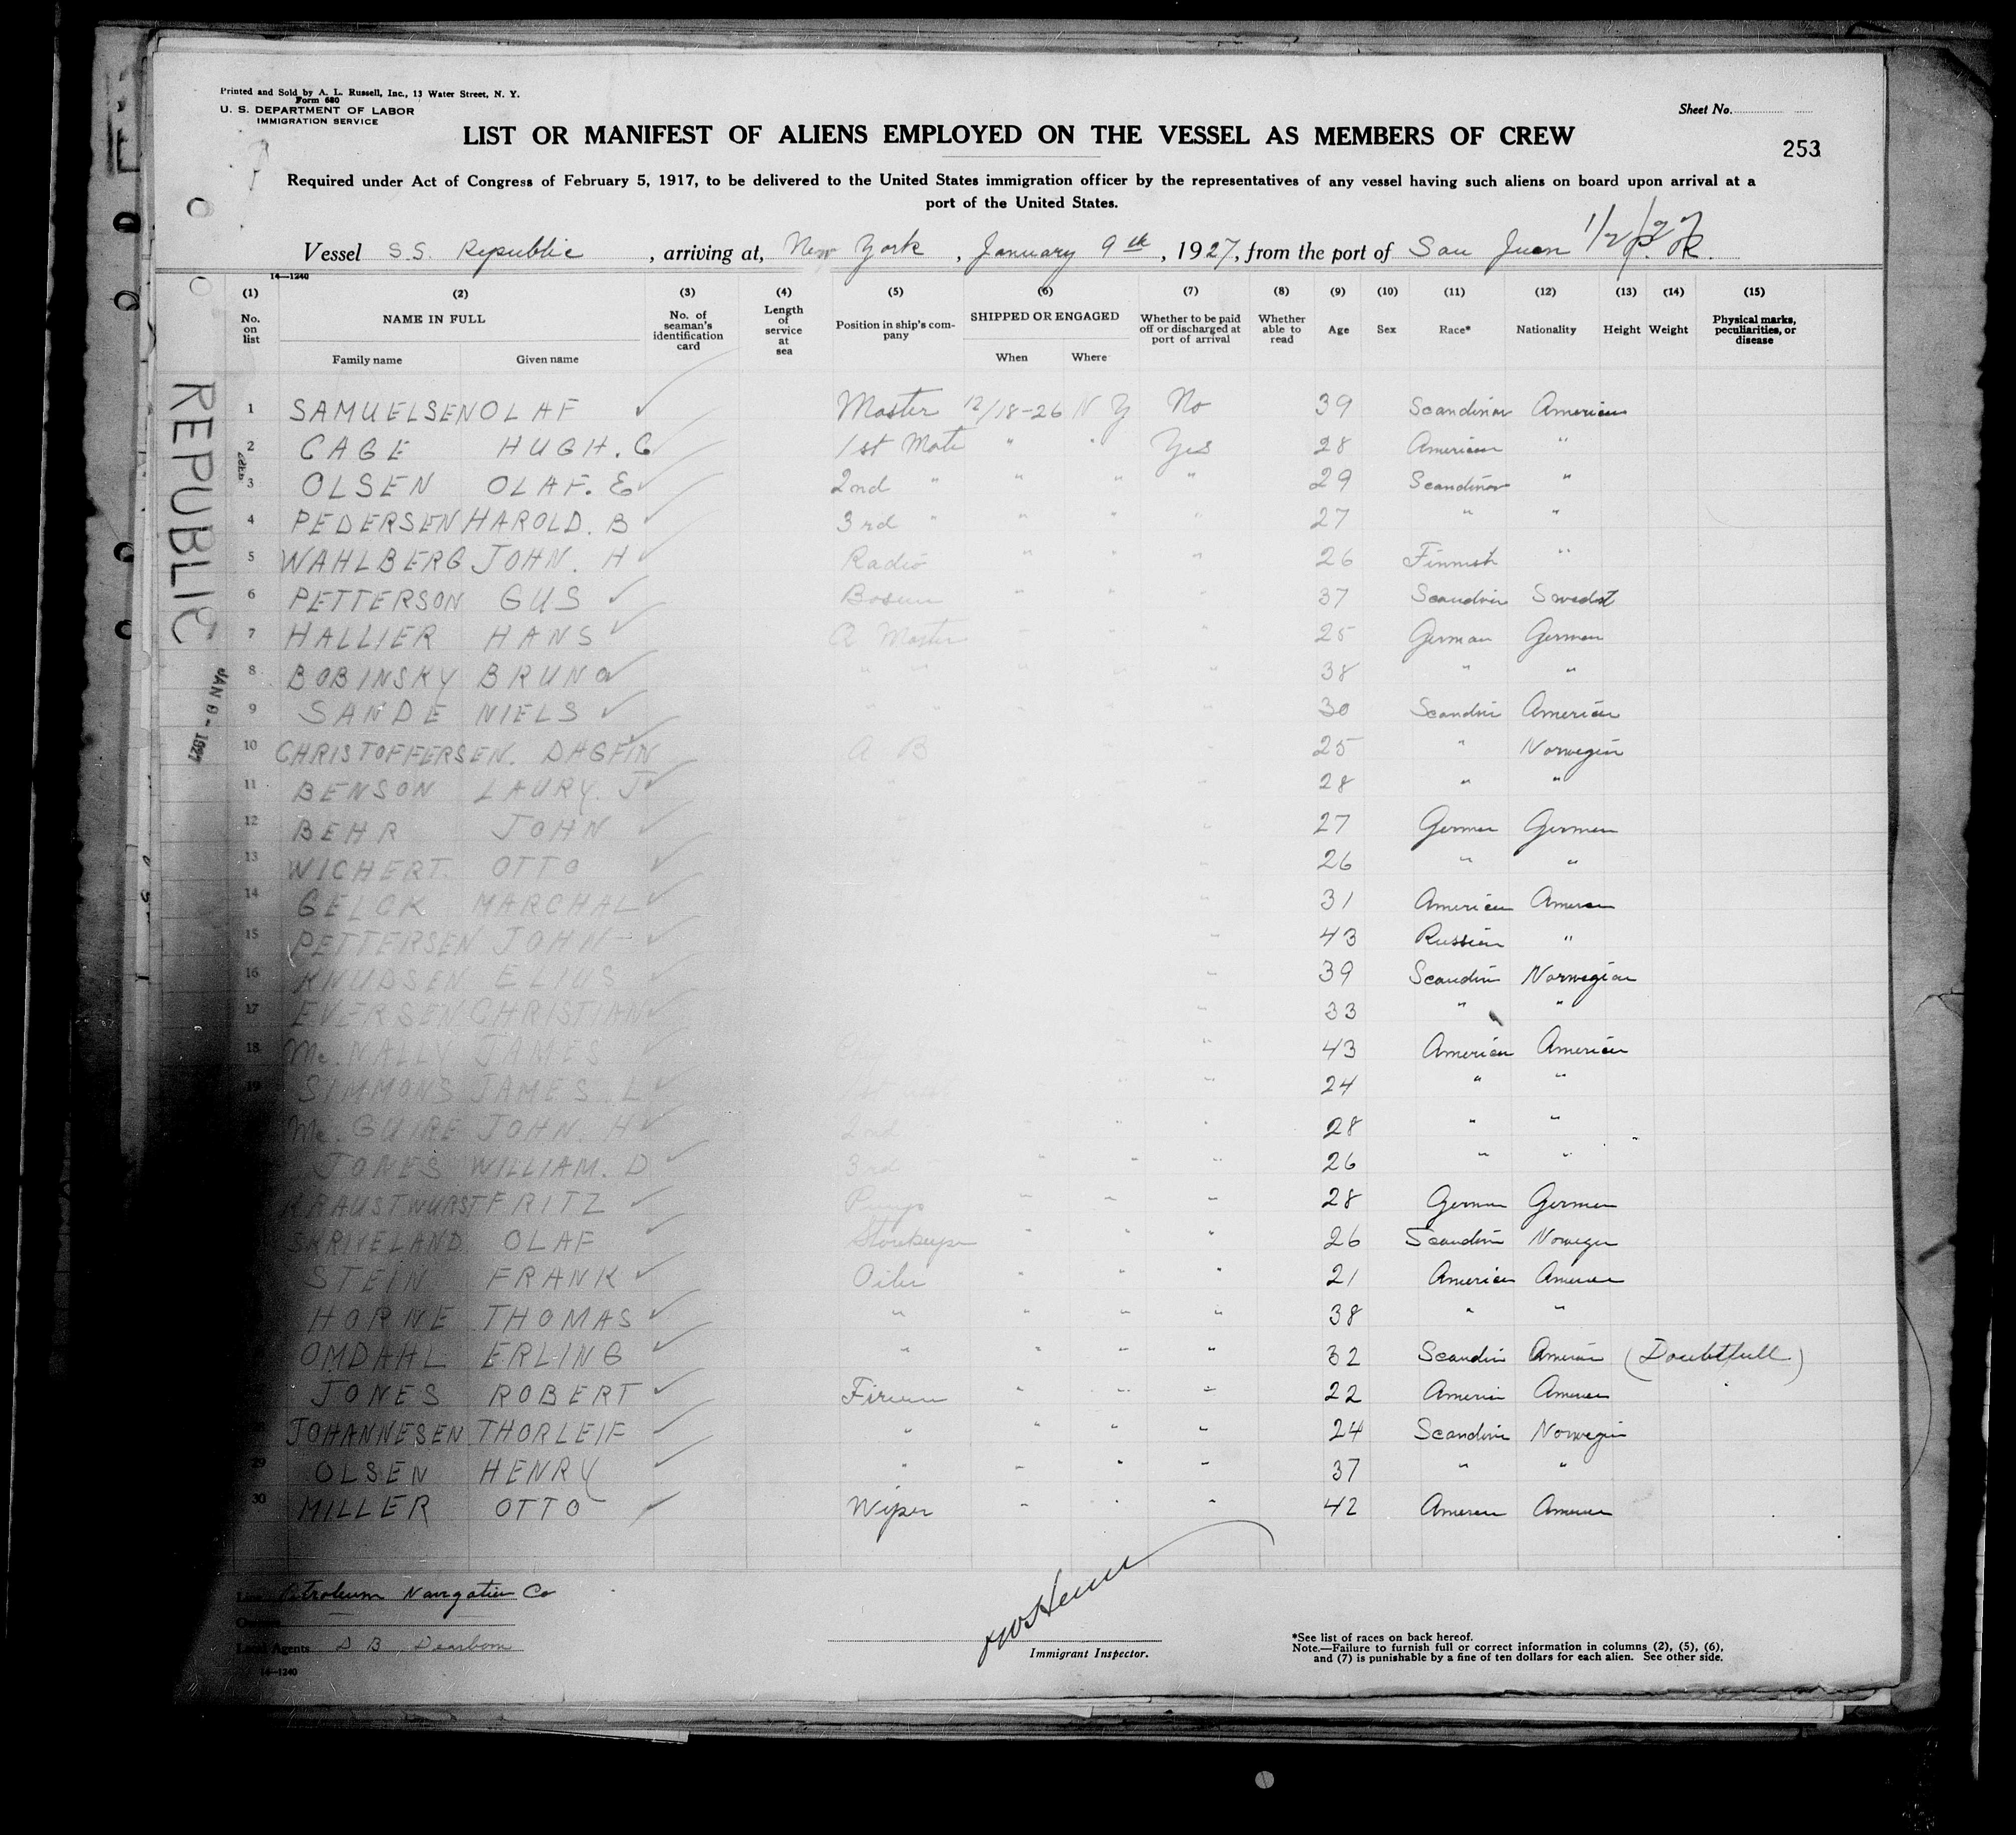 Printed and Sold by A. L. Russell, Inc., 13 Water Street, N. Y.
Form 680
U. S. DEPARTMENT OF LABOR
IMMIGRATION SERVICE
Sheet No.
LIST OR MANIFEST OF ALIENS EMPLOYED ON THE VESSEL AS MEMBERS OF CREW
253
Required under Act of Congress of February 5, 1917, to be delivered to the United States immigration officer by the representatives of any vessel having such aliens on board upon arrival at a
port of the United States.
Vessel S.S. Republic, arriving at, New York, January 9th, 1927, from the port of San Juan P.R.
14—1240
(1) (2) (3) (4) (5) (6) (7) (8) (9) (10) (11) (12) (13) (14) (15)
No. on list
NAME IN FULL
Family name Given name
No. of seaman's identification card
Length of service at sea
Position in ship's company
SHIPPED OR ENGAGED
When Where
Whether to be paid off or discharged at port of arrival
Whether able to read
Age
Sex
Race*
Nationality
Height
Weight
Physical marks, peculiarities, or disease
REPUBLIC
JAN 9 - 1927
1 SAMUELSEN OLAF Master 12/18-26 N Y No 39 Scandinav American
2 CAGE HUGH. G 1st Mate " " Yes 28 American "
3 OLSEN OLAF. E 2nd " " " " 29 Scandinav "
4 PEDERSEN HAROLD. B 3rd " " " " 27 " "
5 WAHLBERG JOHN. H Radio " " " 26 Finnish "
6 PETTERSON GUS Bosun " " " 37 Scandin Swedish
7 HALLIER HANS Q Master " " " 25 German German
8 BOBINSKY BRUNO " " " " " 38 " "
9 SANDE NIELS " " " " " 30 Scandin American
10 CHRISTOFFERSEN. DAGFIN A B " 25 " Norwegian
11 BENSON LAURY. J " " 28 " "
12 BEHR JOHN " 27 German German
13 WICHERT OTTO " 26 " "
14 GELCK MARCHAL " 31 American American
15 PETTERSEN JOHN " 43 Russian "
16 KNUDSEN ELIUS " 39 Scandin Norwegian
17 EVERSEN CHRISTIAN " 33 " "
18 Mc. NALLY JAMES " " 43 American American
19 SIMMONS JAMES. L " " 24 " "
Mc. GUIRE JOHN. H 2nd " " 28 " "
JONES WILLIAM. D 3rd " " " 26 " "
KRAUSTWURST FRITZ Pump " " " 28 German German
SKRIVELAND OLAF Storekeeper " " " 26 Scandin Norwegn
STEIN FRANK Oiler " " " 21 American American
HORNE THOMAS " " " " 38 " "
OMDAHL ERLING " " " " 32 Scandin American (Doubtfull)
JONES ROBERT Firemn " " " 22 American American
JOHANNESEN THORLEIF " " " " 24 Scandin Norwegin
29 OLSEN HENRY " " " " 37 " "
30 MILLER OTTO Wiper " " " 42 American American
Petroleum Navigation Co
Local Agents D B Dearborn
14—1240
Immigrant Inspector.
*See list of races on back hereof.
Note.—Failure to furnish full or correct information in columns (2), (5), (6),
and (7) is punishable by a fine of ten dollars for each alien. See other side.